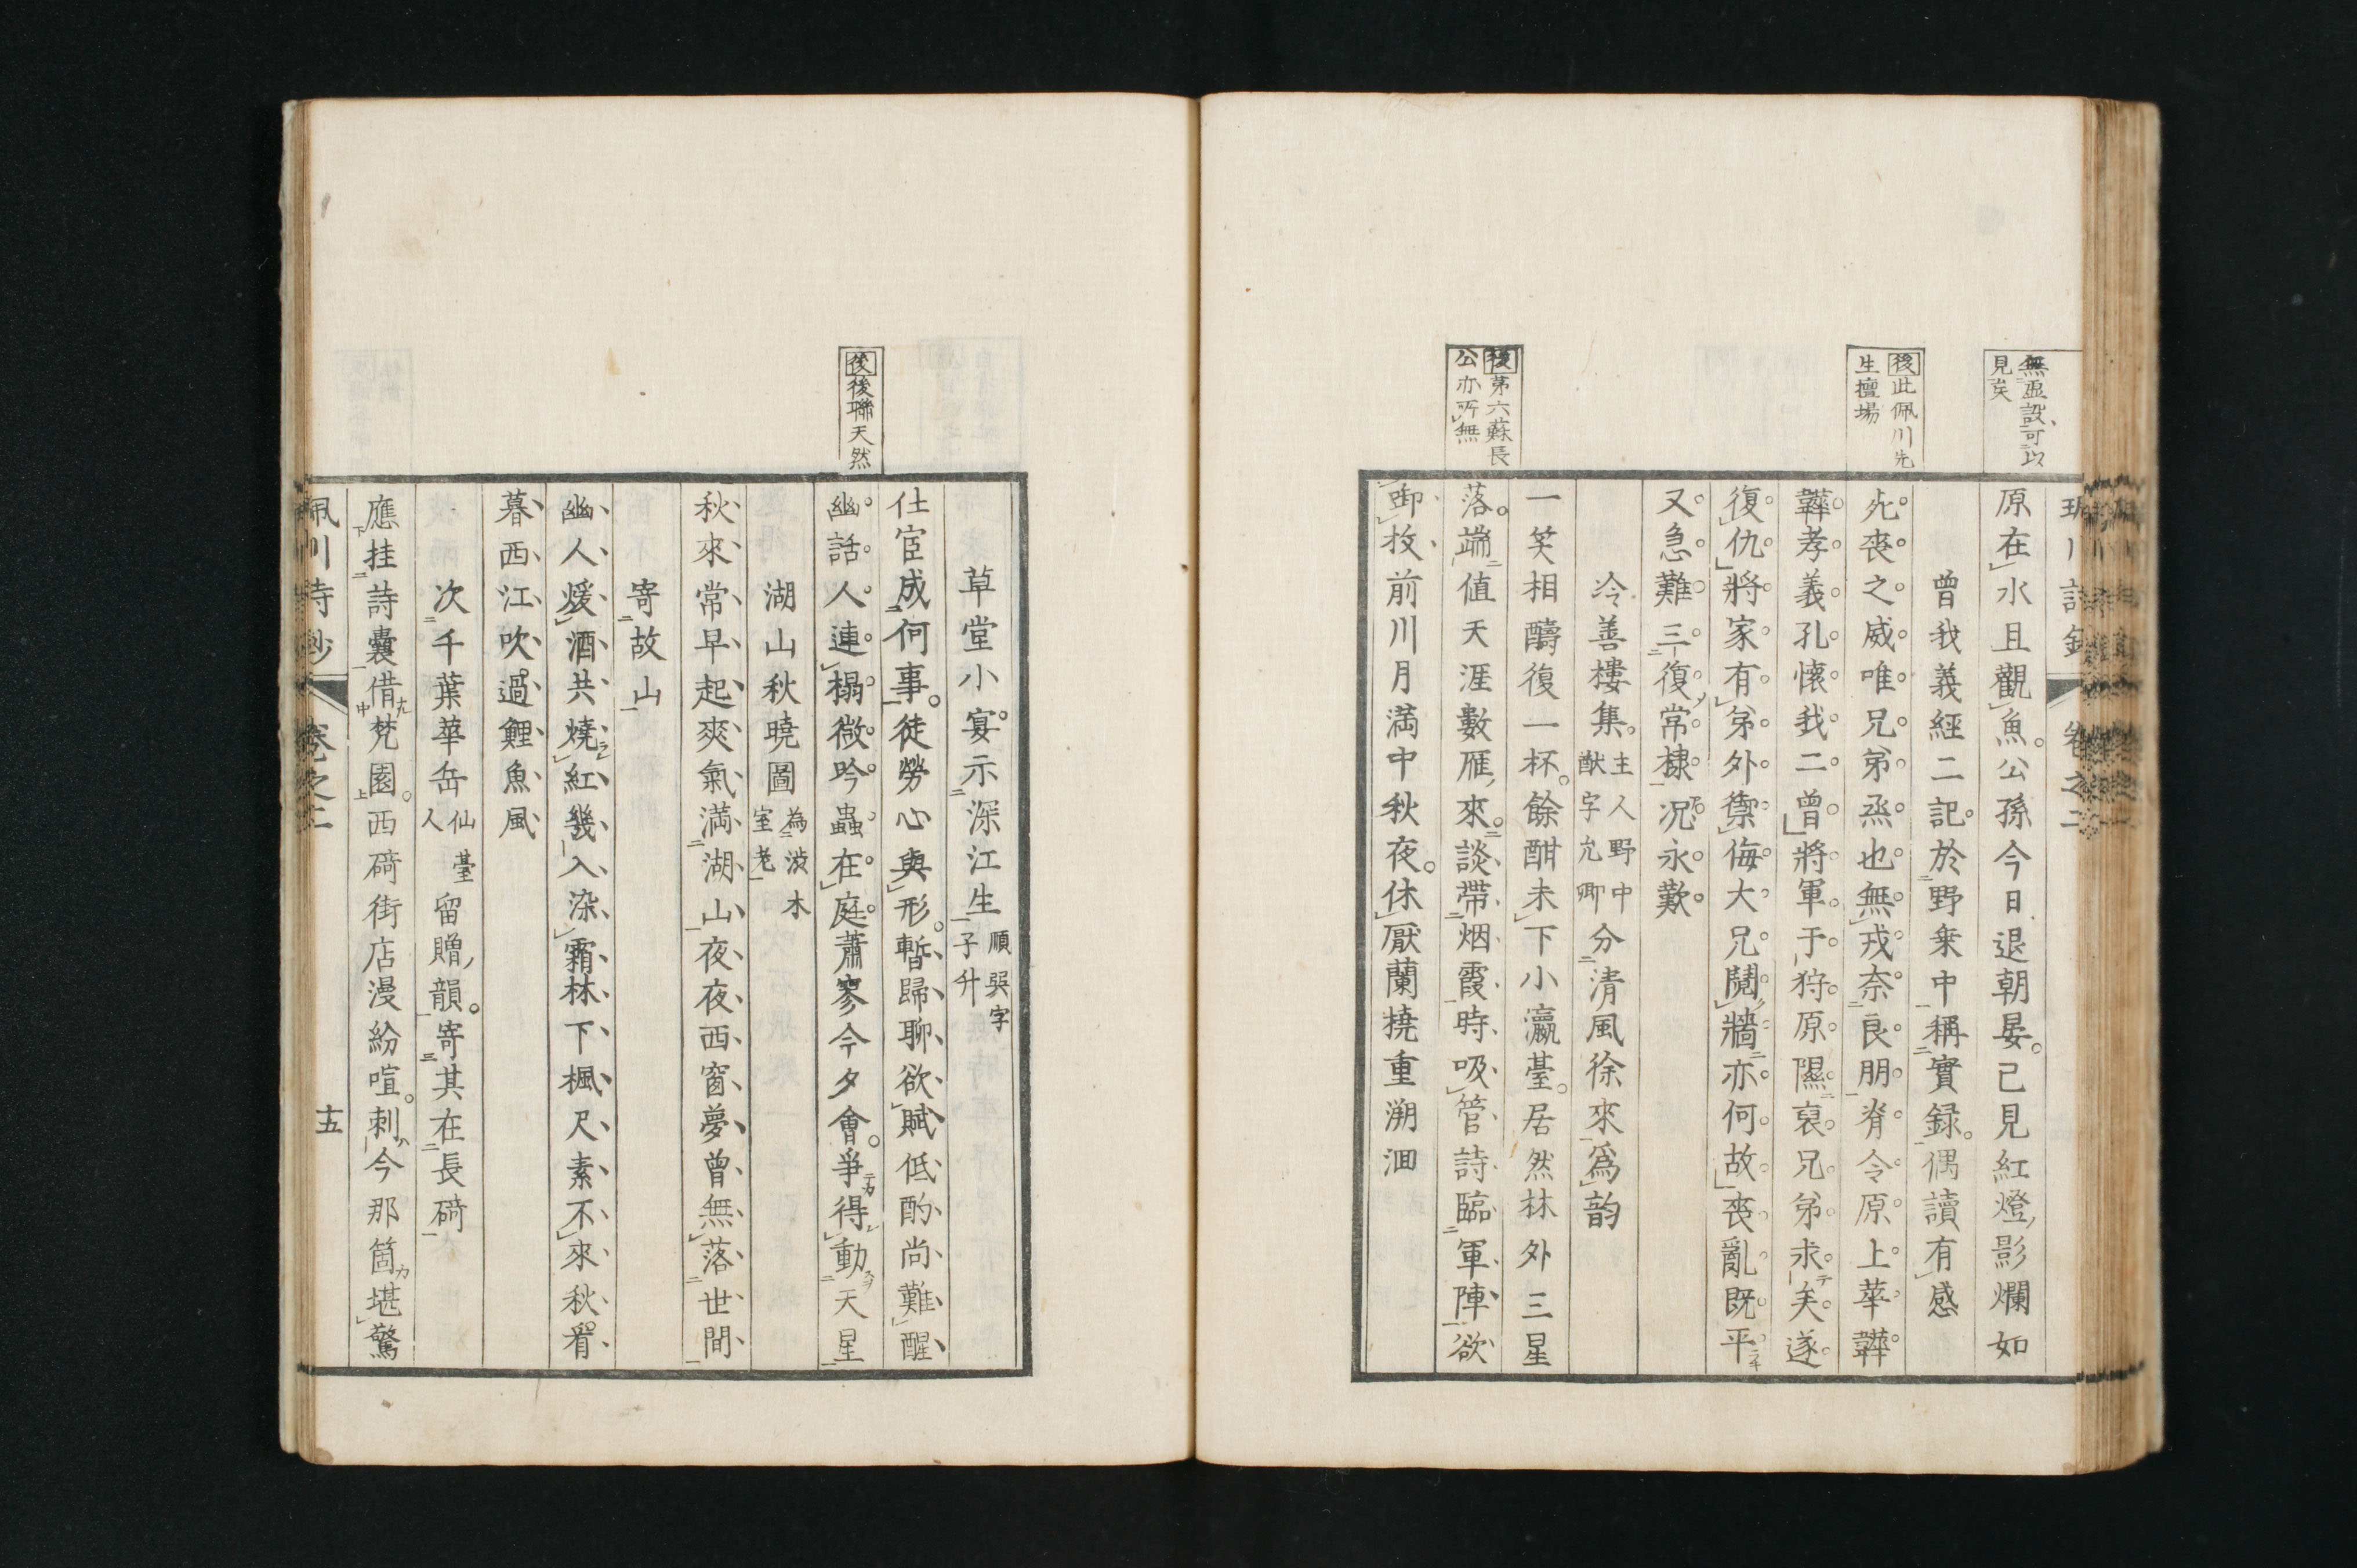 無虛設可以
見矣
後此佩川先
生擅場
後第六蘇長
公亦所無
原在水且觀魚公孫今日退朝晏已見紅燈影爛如
曾我義經二記於野乗中稱實録偶讀有感
死喪之威唯兄弟烝也無戎奈良朋脊令原上華韡
韡孝義孔懷我二曾將軍于狩原隰裒兄弟求矣遂
復仇將家有弟外禦侮大兄鬩牆亦何故喪亂既平
又急難三復常棣况永歎
泠善樓集主人野中
猷字允卿分清風徐來爲韵
一笑相醻復一杯餘酣未下小瀛臺居然林外三星
落端値天涯數雁來談帶烟霞時吸管詩臨軍陣欲
御枚前川月満中秋夜休厭蘭撓重溯洄
後後聯天然
草堂小宴示深江生順巽字
子升
仕宦成何事徒勞心與形暫歸聊欲賦低酌尚難醒
幽話人連榻微吟蟲在庭蕭寥今夕會爭得動天星
湖山秋曉圖為澁木
室老
秋來常早起爽氣満湖山夜夜西窗夢曾無落世間
寄故山
幽人煖酒共燒紅幾入染霜林下楓尺素不來秋看
暮西江吹過鯉魚風
次千葉華岳仙臺
人留贈韻寄其在長碕
應挂詩囊借梵園西碕街店漫紛喧刺今那箇堪驚
佩川詩鈔
卷之二
十五